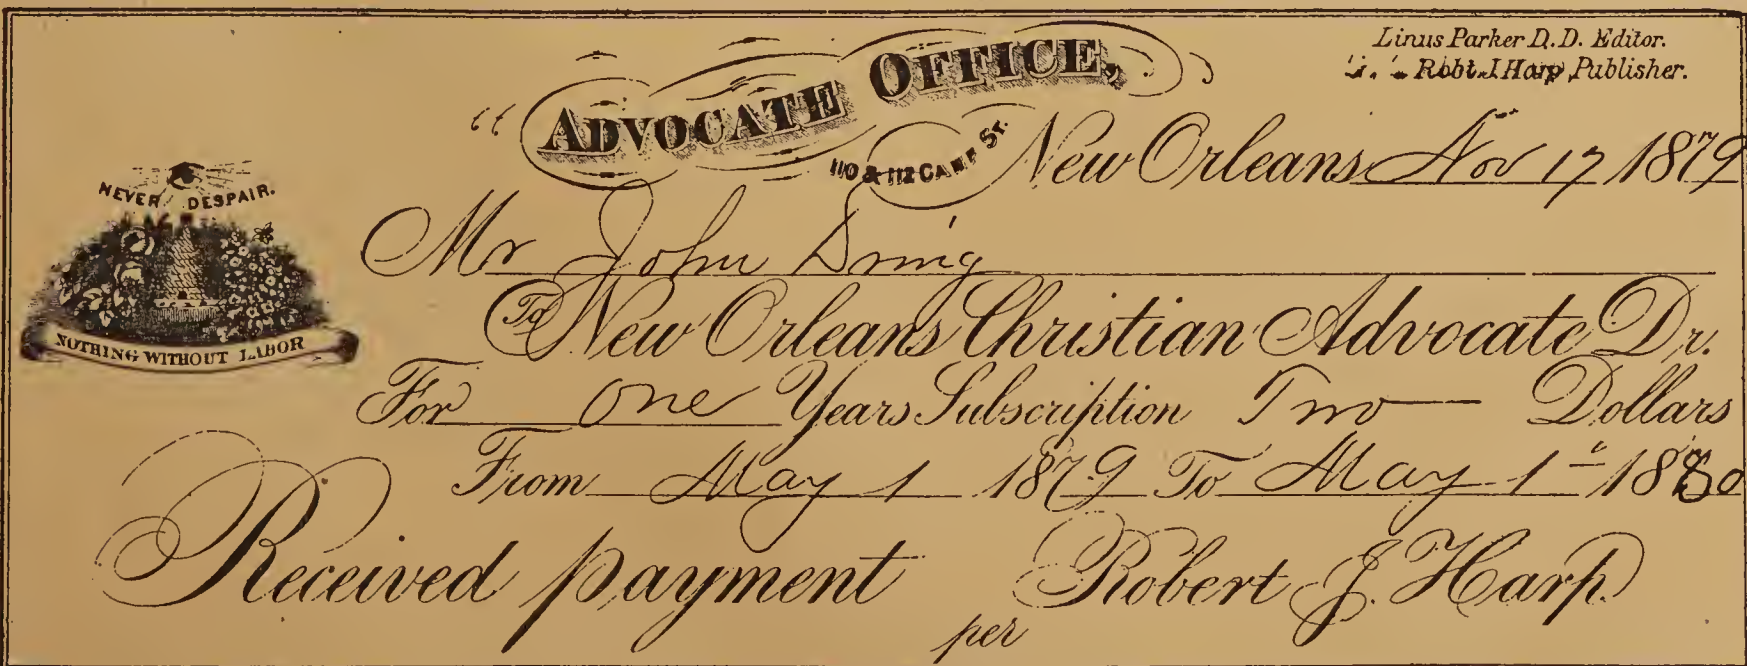 Linus Parker D.D. Editor.
Robt. J. Harp, Publisher.
"ADVOCATE OFFICE,
110 & 112 CAMP ST.
New Orleans Nov 17 1879
NEVER DESPAIR.
NOTHING WITHOUT LABOR
Mr John
To New Orleans Christian Advocate Dr.
For One Years Subscription Two Dollars
From May 1 1879 To May 1 1880
Received payment Robert J. Harp.
per